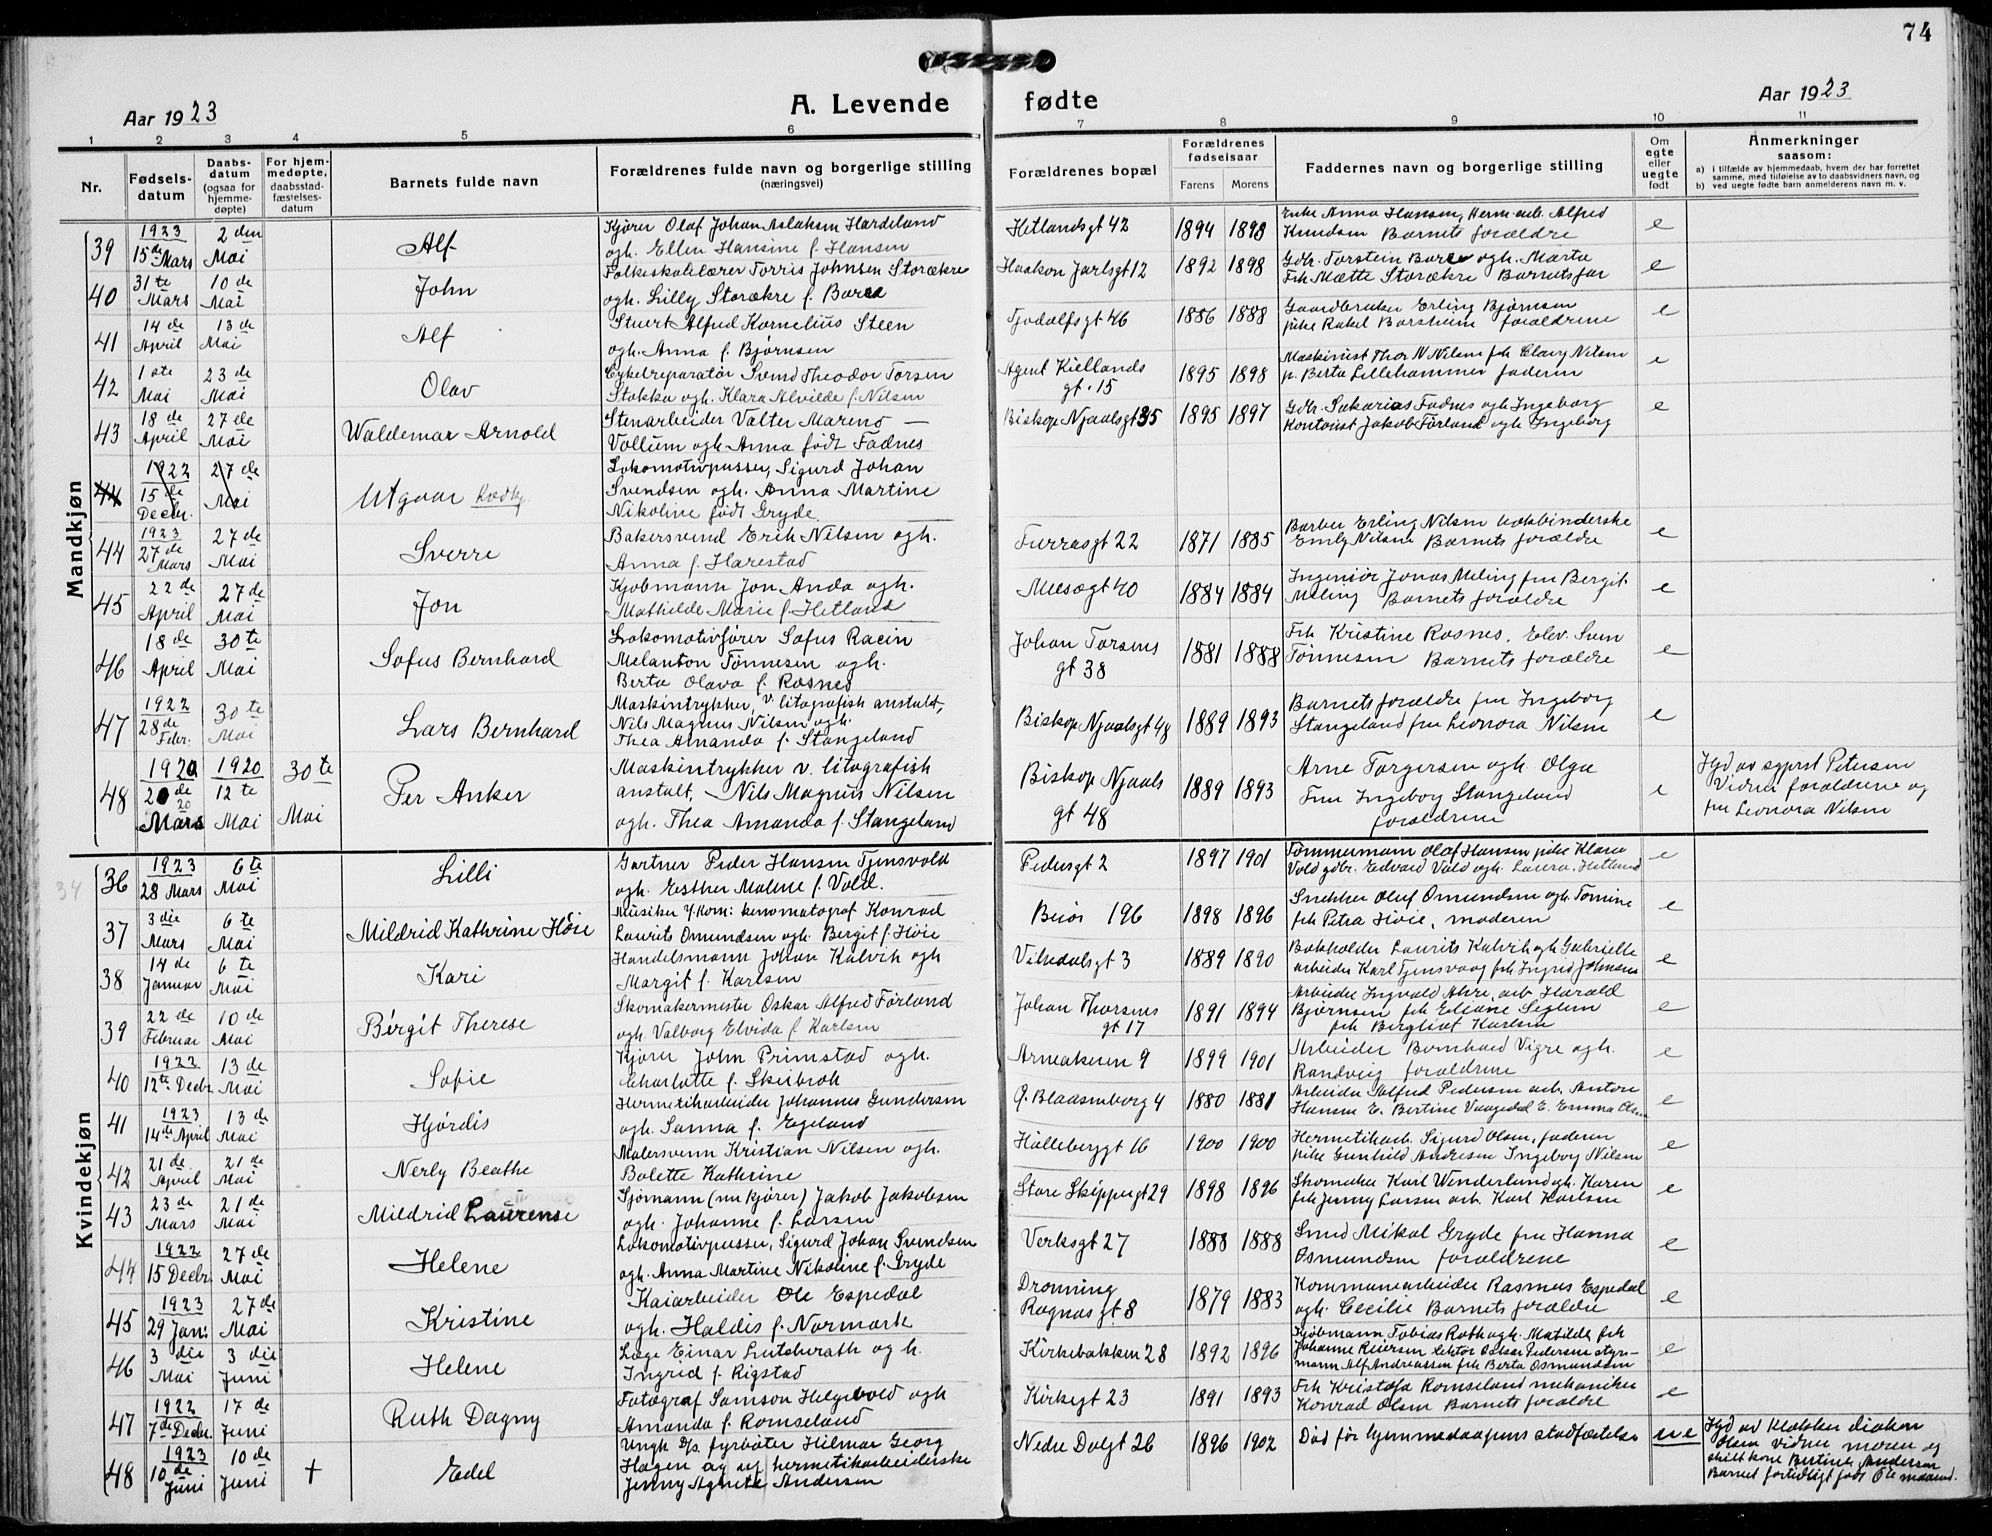 74
Aar 1923
A. Levende fødte
Aar 1923
1 2 3 4 5 6 7 8 9 10 11
Nr.
Fødsels-
datum
Daabs-
datum
(ogsaa for
hjemme-
døpte)
For hjem-
medøpte,
daabsstad-
fæstelses-
datum
Barnets fulde navn
Forældrenes fulde navn og borgerlige stilling
(næringsvei)
Forældrenes bopæl
Forældrenes
fødselsaar
Farens Morens
Faddernes navn og borgerlige stilling
Om
egte
eller
uegte
født
Anmerkninger
saasom:
a) i tilfælde av hjemmedaab, hvem der har forrettet
samme, med tilføielse av to daabsvidners navn, og
b) ved uegte fødte barn anmelderens navn m. v.
Mandkjøn
39 1923 15de Mars 2den Mai Alf
Kjører Olaf Johan Aslaksen Hardeland
ogh. Ellen Hansine f. Hansen
Hetlandsgt 42 1894 1898
Enke Anna Hansen, Herm. arb. Alfred
Knudsen Barnets forældre e
40 31te Mars 10de Mai John
Folkeskolelærer Torris Johnsen Storækre
ogh. Lilly Storækre f. Boree
Haakon Jarlsgt 12 1892 1898
Gdbr. Torstein Boree ogh. Marta
Frk Mætte Storækre Barnets far e
41 14de April 13de Mai Alf
Stuert Alfred Kornelius Steen
ogh. Anna f. Bjørnsen
Tjodolfsgt 46 1886 1888
Gaardbruker Erling Bjørnsen
pike Rakel Borsheim forældrene e
42 1ste Mai 23de Mai Olav
Cykelreparatør Svend Theodor Torsen
Stokka ogh. Klara Alvilde f. Nilsen
Agent Kiellands
gt. 15 1895 1898
Maskinist Thor N Nilsen frk Clary Nilsen
p. Berta Lillehammer faderen e
43 18de April 27de Mai Waldemar Arnold
Stenarbeider Valter Marens
Vollum ogh. Anna født Fadnes
Biskop Njaalsgt 35 1895 1897
Gdbr. Sakarias Fadnes ogh Ingeborg
Kontorist Jakob Førland ogh Ingeborg e
44 1922 15de Decbr. 27de Mai Utgaar
Lokomotivpusser, Sigurd Johan
Svendsen ogh. Anna Martine
Nikoline født Gryde
44 1923 27de Mars 27de Mai Sverre
Bakersvend Erik Nilsen ogh.
Anna f. Harestad
Furrasgt 22 1871 1885
Barber Erling Nilsen bokbinderske
Emly Nilsen Barnets forældre e
45 22de April 27de Mai Jon
Kjøbmann Jon Anda ogh.
Mathilde Marie f. Hetland
Musægt 40 1884 1884
Ingeniør Jonas Meling fru Bergit
Meling Barnets forældre e
46 18de April 30te Mai Sofus Bernhard
Lokomotivfører Sofus Racin
Melanton Tønnesen ogh.
Berta Olava f. Rosnes
Johan Torsens
gt 38 1881 1888
Frk Kristine Rosnes, Elev. Sven
Tønnesen Barnets forældre e
47 1922 28de Febr. 30te Mai Lars Bernhard
Maskintrykker, v. litografisk anstalt,
Nils Magnus Nilsen ogh.
Thea Amanda f. Stangeland
Biskop Njaalsgt 48 1889 1893
Barnets forældre fru Ingeborg
Stangeland fru Leonora Nilsen e
48 1920 20de 20 Mars 1920 12te Mai 30te Mai Per Anker
Maskintrykker v. litografisk
anstalt, Nils Magnus Nilsen
ogh. Thea Amanda f. Stangeland
Biskop Njaals
gt 48 1889 1893
Arne Torgersen ogh. Olga
Fru Ingeborg Stangeland
forældrene e
Hjd av sygpret Petersen
Vidner forældrene og
fru Leonora Nilsen
Kvindekjøn
34
36 1923 28 Mars 6te Mai Lilli
Gartner Peder Hansen Tjensvold
ogh. Esther Malene f. Vold.
Pedersgt 2 1897 1901
Tømmermann Olaf Hansen pike Klara
Vold gdbr. Edvard Vold ogh. Laura Hetland e
37 3die Mars 6te Mai Mildrid Kathrine Høie
Musiker v/ Kom: kinomatograf Konrad
Laurits Omundsen ogh. Bergit f. Høie
Beiør 196 1898 1896
Snekker Oluf Omundsen ogh. Tomine
frk Petra Høie, moderen e
38 14de Januar 6te Mai Kari
Handelsmann Johan Kalvik ogh
Margit f. Karlsen
Vikedalsgt 3 1889 1890
Bokholder Laurits Kalvik ogh Gabrielle
arbeider Karl Tjensvoog frk Ingrid Johnsen e
39 22de Februar 10de Mai Birgit Therese
Skomakermester Oskar Alfred Førland
ogh Valborg Elvida f. Karlsen
Johan Thorsens
gt 17 1891 1894
Arbeider Ingvald Ahre, arb Harald
Bjørnsen frk Eliane Seglem
frk Bergliot Karlsen e
40 1922 12te Decbr 13de Mai Sofie
Kjører John Primstad ogh.
Charlotte f. Skeibrok
Arneakeren 9 1899 1901
Arbeider Bernhard Vigre ogh.
Randveig forældrene e
41 1923 14de April 13de Mai Hjørdis
Hermetikarbeider Johannes Gundersen
ogh. Sanna f. Egeland
Q. Blaasenborg 4 1880 1881
Arbeider Alfred Pedersen arb. Anton
Hansen E. Bertine Vaagedal E. Emma Olsen e
42 21de April 21de Mai Nerly Beathe
Malersvenn Kristian Nilsen ogh.
Bolette Kathrine
Hollebergt 16 1900 1900
Hermetikarb. Sigurd Olsen, faderen
pike Gunhild Andresen Ingeborg Nilsen e
43 23de Mars 21de Mai Mildrid Laurense
Sjømann (nu kjører) Jakob Jakobsen
ogh. Johanne f. Larsen
Store Skippergt 29 1898 1896
Skomaker Karl Wenderlund ogh. Karen
frk Jenny Larsen arb. Karl Karlsen e
44 1922 15 Decbr. 27de Mai Helene
Lokomotivpusser, Sigurd Johan Svendsen
ogh. Anna Martine Nikoline f. Gryde
Verksgt 27 1888 1888
Smed Mikal Gryde fru Hanna
Osmundsen forældrene e
45 1923 29 Jan: 27de Mai Kristine
Kaiarbeider Ole Espedal
ogh. Haldis f. Normark
Dronning
Ragnasgt 8 1879 1883
Kommunearbeider Rasmus Espedal
ogh. Cecilie Barnets forældre e
46 3die Mai 3die Juni Helene
Læge Einar Lutcherath og h.
Ingrid f. Rigstad
Kirkebakken 28 1892 1896
Kjøbmann Tobias Roth ogh. Matilde frk
Johanne Reiersen lektor Oskar Pedersen styr-
mann Alf Andreassen frk Berta Osmundsen e
47 1922 7de Decbr. 17de Juni Ruth Dagny
Fotograf Samson Helgevold ogh
Amanda f. Romseland
Kirkegt 23 1891 1893
Frk Kristofa Romseland mekaniker
Konrad Olsen Barnets forældre e
48 1923 10de Juni 10de Juni + Edel
Ungk D/s fyrbøter Hilmar Georg
Hagen og ug. hermetikarbeiderske
Jenny Agnete Andersen
Nedre Dalgt 26 1896 1902
Død før hjemmedaapens stadfæstelse u e
Hjd av Klokker diakon
Olsen Vidner moren og
skilt kone Bertine Andersen
Barnet fortidligt født 6te maaned.